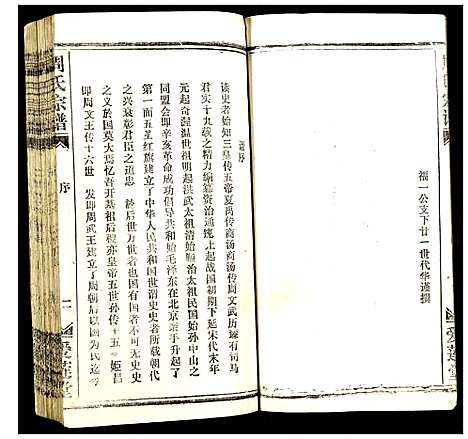 福一公支下廿一世代华谨撰
谱序
读史者始知三皇传五帝夏禹传商汤商汤传周文武历琢有司马
君实十九载之精力编纂资治通鉴上起战国初期下延宋代末年
元起奇渥温世祖洪明起洪武太祖清始顺治太祖民国始孙中山之
同盟会即辛亥革命成功倡导共和始毛泽东在北京亲手升起了
第一面五星红旗建立了中华人民共和国世谓史史者所载朝代
之兴衰彰君臣之迪忠 於后世万世者也国有国者不可无史史
之义於国莫大焉忆吾开基祖后稷亦皇帝五世孙传十五 姬昌
即周文王传十六世 发即周武王建立了周朝后以国为氏迄
周氏宗谱
序
二
爱莲堂
周氏宗谱
爱莲堂